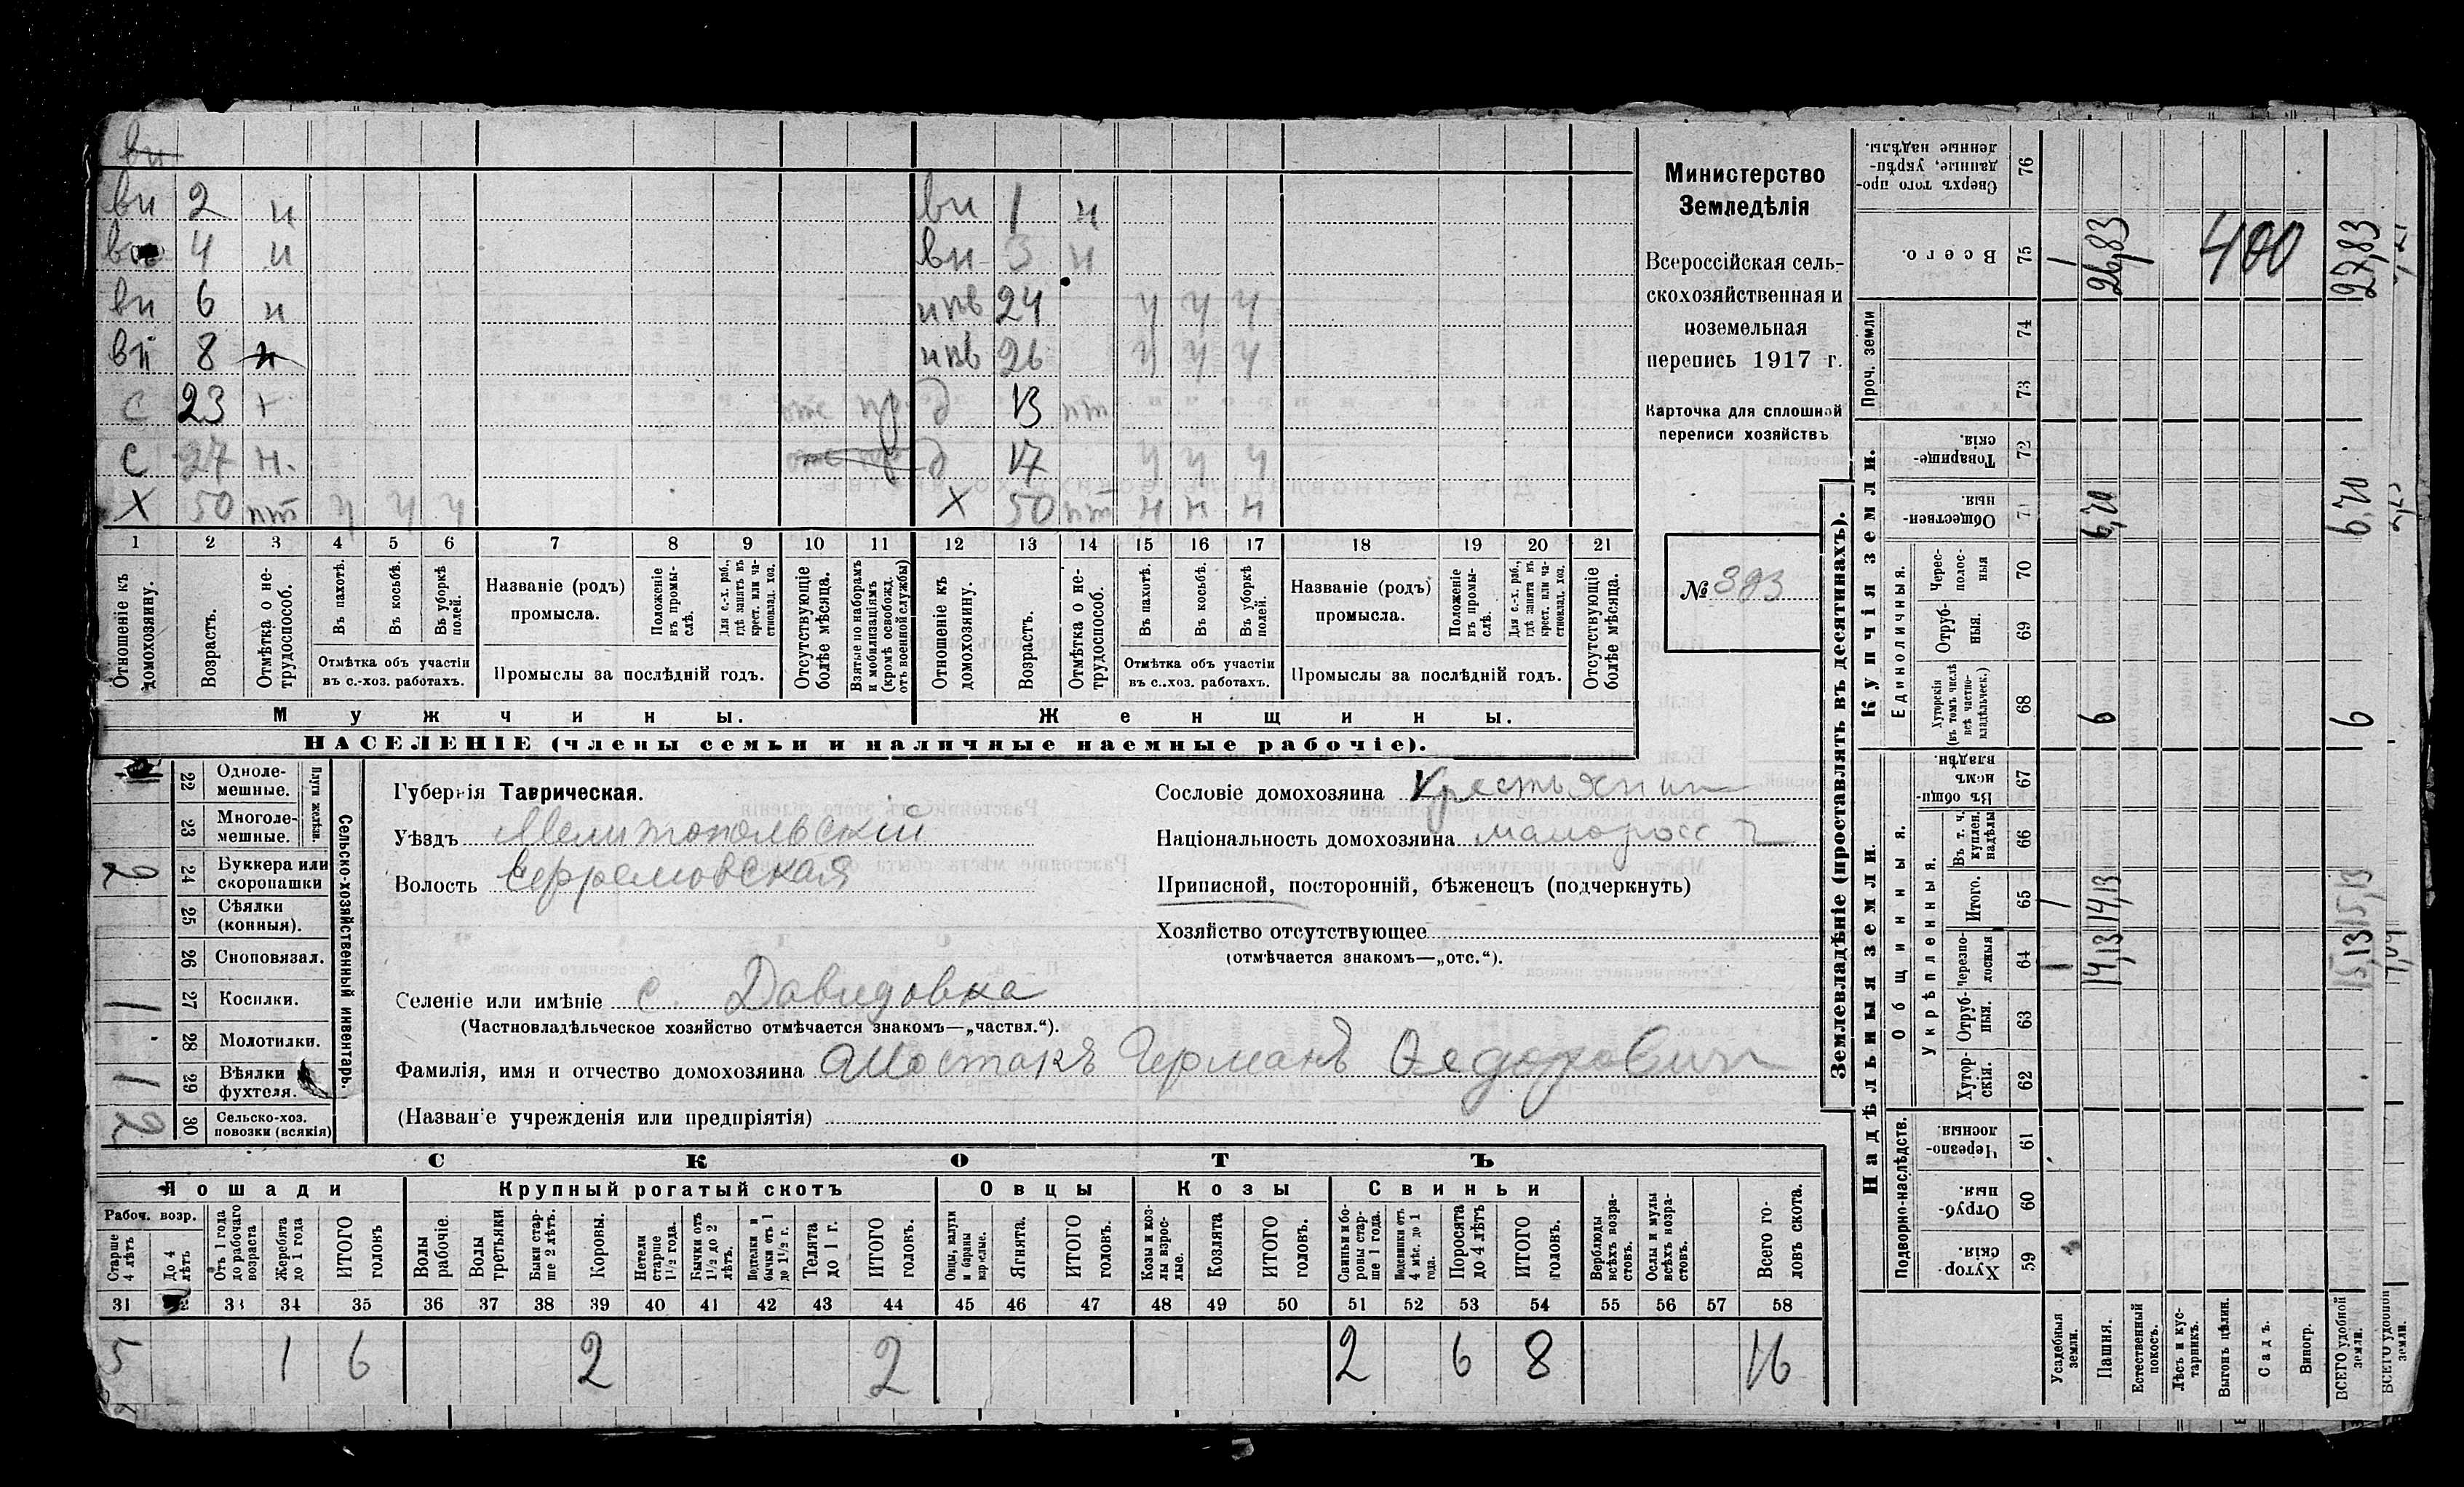 ви
ви 2 н ви 1 н
4 н ви 3 н
ви 6 н нпв 24 ч ч ч
вп 8 н нпв 26 ч ч ч
с 23 + д 13 пт
с 27 н. д 17 ч ч ч
Х 50 пт ч ч ч Х 50 пт н н н
1 2 3 4 5 6 7 8 9 10 11 12 13 14 15 16 17 18 19 20 21
Отношеніе къ домохозяину.
Возрастъ.
Отмѣтка о не-трудоспособ.
Въ пахотѣ.
Въ косьбѣ.
Въ уборкѣ полей.
Отмѣтка объ участіи
въ с.-хоз. работахъ.
Названіе (родъ)
промысла.
Положеніе въ промы-слѣ.
Для с.-х. раб., гдѣ занятъ въ крест. или ча-стновлад. хоз.
Промыслы за послѣдній годъ.
Отсутствующіе болѣе мѣсяца.
Взятые по наборамъ и мобилизаціямъ (кромѣ освобожд. отъ военной службы)
Отношеніе къ домохозяину.
Возрастъ.
Отмѣтка о не-трудоспособ.
Въ пахотѣ.
Въ косьбѣ.
Въ уборкѣ полей.
Отмѣтка объ участіи
въ с..хоз. работахъ.
Названіе (родъ)
промысла.
Положеніе въ промы-слѣ.
Для с.-х. раб., гдѣ занятъ въ крест. или ча-стновлад. хоз.
Промыслы за послѣдній годъ.
Отсутствующіе болѣе мѣсяца.
Мужчины. Женщины.
НАСЕЛЕНІЕ (члены семьи и наличные наемные рабочіе).
Министерство
Земледѣлія
Всероссійская сель-
скохозяйственная и
поземельная
перепись 1917 г.
Карточка для сплошной
переписи хозяйствъ
№ 393
Сельско-хозяйственный инвентарь.
Плуги желѣзн.
22 Одноле-мешные.
23 Многоле-мешные.
2 24 Буккера или скоропашки
25 Сѣялки (конныя).
26 Сноповязал.
1 27 Косилки.
28 Молотилки.
1 29 Вѣялки фухтеля.
2 30 Сельско-хоз. повозки (всякія)
Губернія Таврическая.
Уѣздъ Мелитопольскій
Волость Ефремовская
Сословіе домохозяина Крестьянин
Національность домохозяина малоросс
Приписной, посторонній, бѣженецъ (подчеркнуть)
Хозяйство отсутствующее
(отмѣчается знакомъ—„отс.“).
Селеніе или имѣніе с. Давидовка
(Частновладѣльческое хозяйство отмѣчается знакомъ—„частвл.“).
Фамилія, имя и отчество домохозяина Шостакъ Германъ Ѳедорович
(Названіе учрежденія или предпріятія)
СКОТЪ
Лошади Крупный рогатый скотъ Овцы Козы Свиньи
Рабоч. возр.
Старше 4 лѣтъ
До 4 лѣтъ
Отъ 1 года до рабочаго возраста
Жеребята до 1 года
ИТОГО головъ
Волы рабочіе.
Волы третьяки
Быки стар-ше 2 лѣтъ.
Коровы.
Нетели старше 1½ года.
Бычки отъ 1½ до 2 лѣтъ.
Подтелки и бычки отъ 1 до 1½ г.
Телята до 1 г.
ИТОГО головъ.
Овцы, валухи и бараны взрослые.
Ягнята.
ИТОГО головъ.
Козы и коз-лы взрос-лые.
Козлята
ИТОГО головъ.
Свиньи и бо-ровы стар-ше 1 года.
Подсвинки отъ 4 мѣс. до 1 года.
Поросята до 4 лѣтъ
ИТОГО головъ.
Верблюды всѣхъ возра-стовъ.
Ослы и мулы всѣхъ возра-стовъ.
Всего го-ловъ скота.
31 33 34 35 36 37 38 39 40 41 42 43 44 45 46 47 48 49 50 51 52 53 54 55 56 57 58
5 1 6 2 2 2 6 8 16
Землевладѣніе (проставлять въ десятинахъ).
Надѣльныя земли. Купчія земли. Проч. земли
Подворно-наслѣдств. Общинныя. Укрѣпленныя. Единоличныя.
Сверхъ того про-данные, укрѣп-ленные надѣлы. 76
Всего. 75 26,83 400 27,83
74
73
Товарище-скія. 72
Обществен-ныя. 71 6,70 6,70
Черес-полос-ныя 70
Отруб-ныя. 69
Хуторскія (въ томъ числѣ всѣ частно-владѣльческ.) 68 6 6
Въ общин-номъ владѣн. 67
Въ т. ч. куплен. надѣлы 66
Итого. 65 1 14,13 15,13
Черезпо-лосныя 64 1 14,13 15,13
Отруб-ныя. 63
Хутор-скія. 62
Черезпо-лосныя. 61
Отруб-ныя. 60
Хутор-скія. 59
Усадебныя земли.
Пашня.
Естественный покосъ.
Лѣсъ и кус-тарникъ.
Выгонъ цѣлин.
Садъ.
Виногр.
ВСЕГО удобной земли.
ВСЕГО удобной земли.